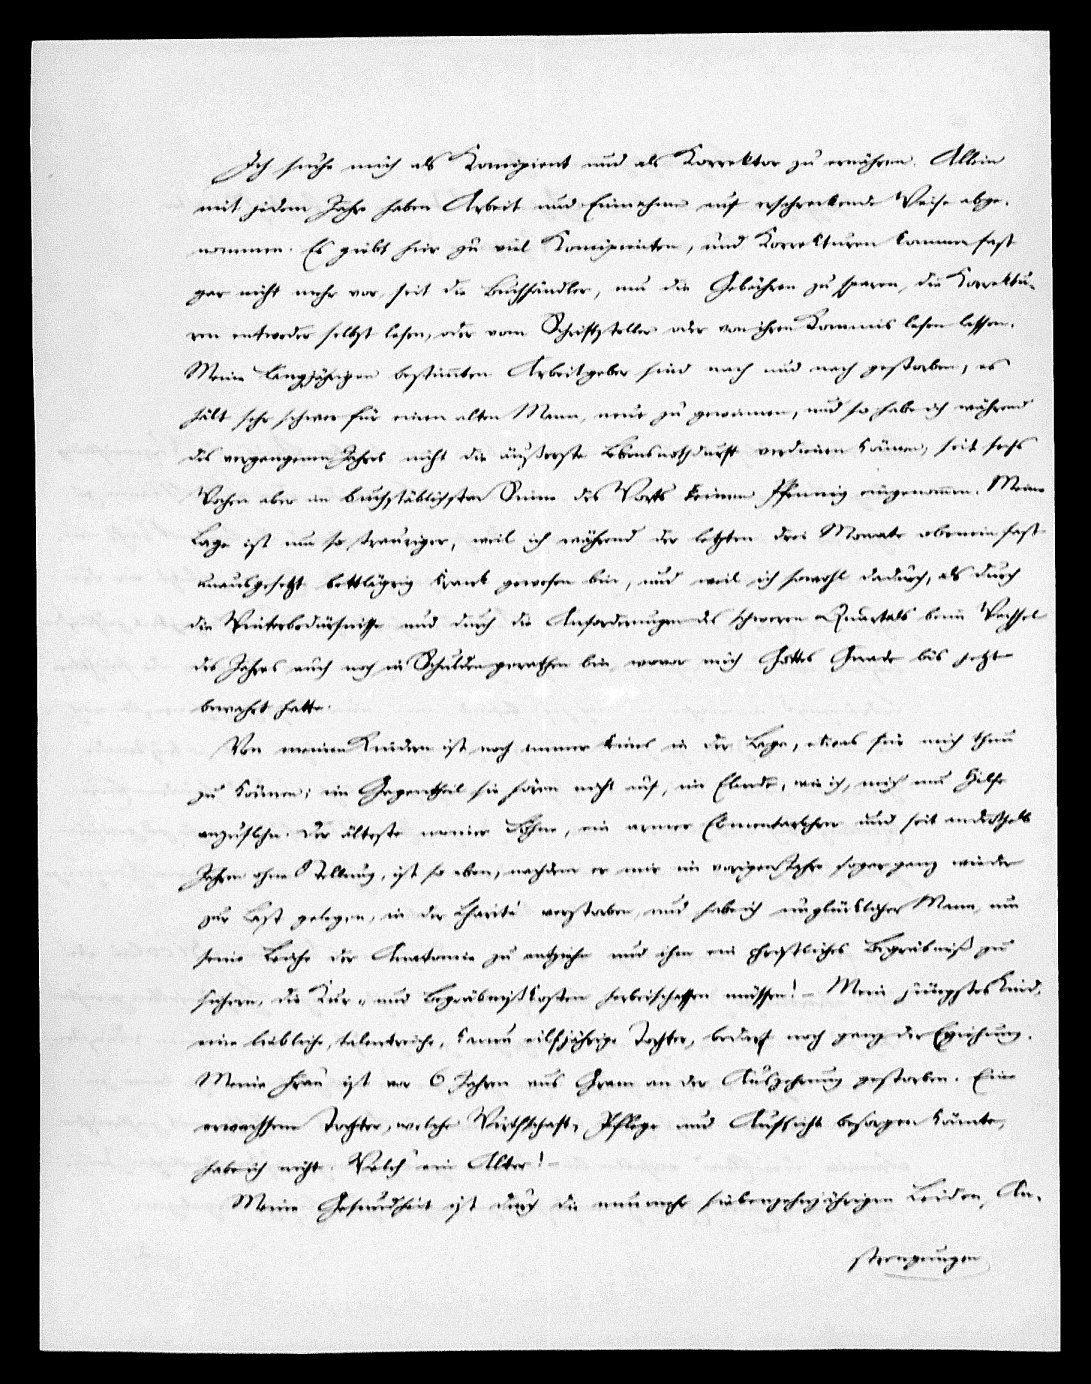 Ich suche mich als Concipient und als Korrektor zu ernähren. Allein
mit jedem Jahre haben Arbeit und Einnahme auf erschreckende Weise abge-
nommen. Es giebt hier zu viel Concipienten, und Korrekturen kommen fast
gar nicht mehr vor, seit die Buchhändler, um die Gebühren zu sparen, die Korrektu-
ren entweder selbst lesen, oder vom Schriftsteller oder von ihren Kommis lesen lassen.
Meine langjährigen bestimmten Arbeitgeber sind nach und nach gestorben, es
hält sehr schwer für einen alten Mann, neue zu gewinnen, und so habe ich während
des vergangenen Jahres nicht die äußerste Lebensnothdurft verdienen können, seit sechs
Wochen aber im buchstäblichsten Sinne des Worts keinen Pfennig eingenommen. Meine
Lage ist um so trauriger, weil ich während der letzten drei Monate obenein fast
unausgesetzt bettlägrig krank gewesen bin, und weil ich sowohl dadurch, als durch
die Winterbedürfnisse und durch die Anforderungen des schweren Quartals beim Wechsel
des Jahres auch noch in Schulden gerathen bin, wovor mich Gottes Gnade bis jetzt
bewahrt hatte.
Von meinen Kindern ist noch immer keines in der Lage, etwas für mich thun
zu können; im Gegentheil sie hören nicht auf, im Elende, wie ich, mich um Hilfe
anzuflehn. Der älteste meiner Söhne, ein armer Elementarlehrer und seit anderthalb
Jahren ohne Stellung, ist so eben, nachdem er mir im vorigen Jahre sogar ganz wieder
zur Last gelegen, in der Charité verstorben, und habe ich unglücklicher Mann, um
seine Leiche der Anatomie zu entziehn und ihm ein christliches Begräbniß zu
sichern, die Kur- und Begräbnißkosten herbeischaffen müssen! – Mein jüngstes Kind,
eine liebliche, talentreiche, kaum eilfjährige Tochter, bedarf noch ganz der Erziehung.
Meine Frau ist vor 6 Jahren aus Gram an der Auszehrung gestorben. Eine
erwachsene Tochter, welche Wirthschaft, Pflege und Aufsicht besorgen könnte,
habe ich nicht. Welch' ein Alter! –
Meine Gesundheit ist durch die nunmehr siebenzehnjährigen Leiden, An-
strengungen